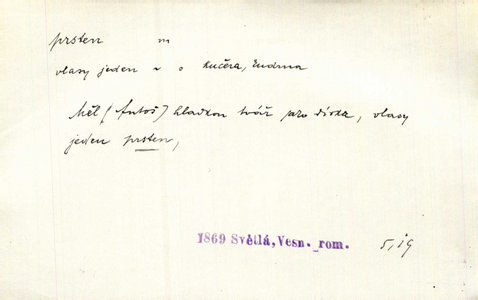 prsten m
vlasy jeden a s kučera, kudrna
Měl (Antoš) hladkou tvář pro dívka, vlasy
jeden prsten,
1869 Světlá, Vesn. rom. 5,19